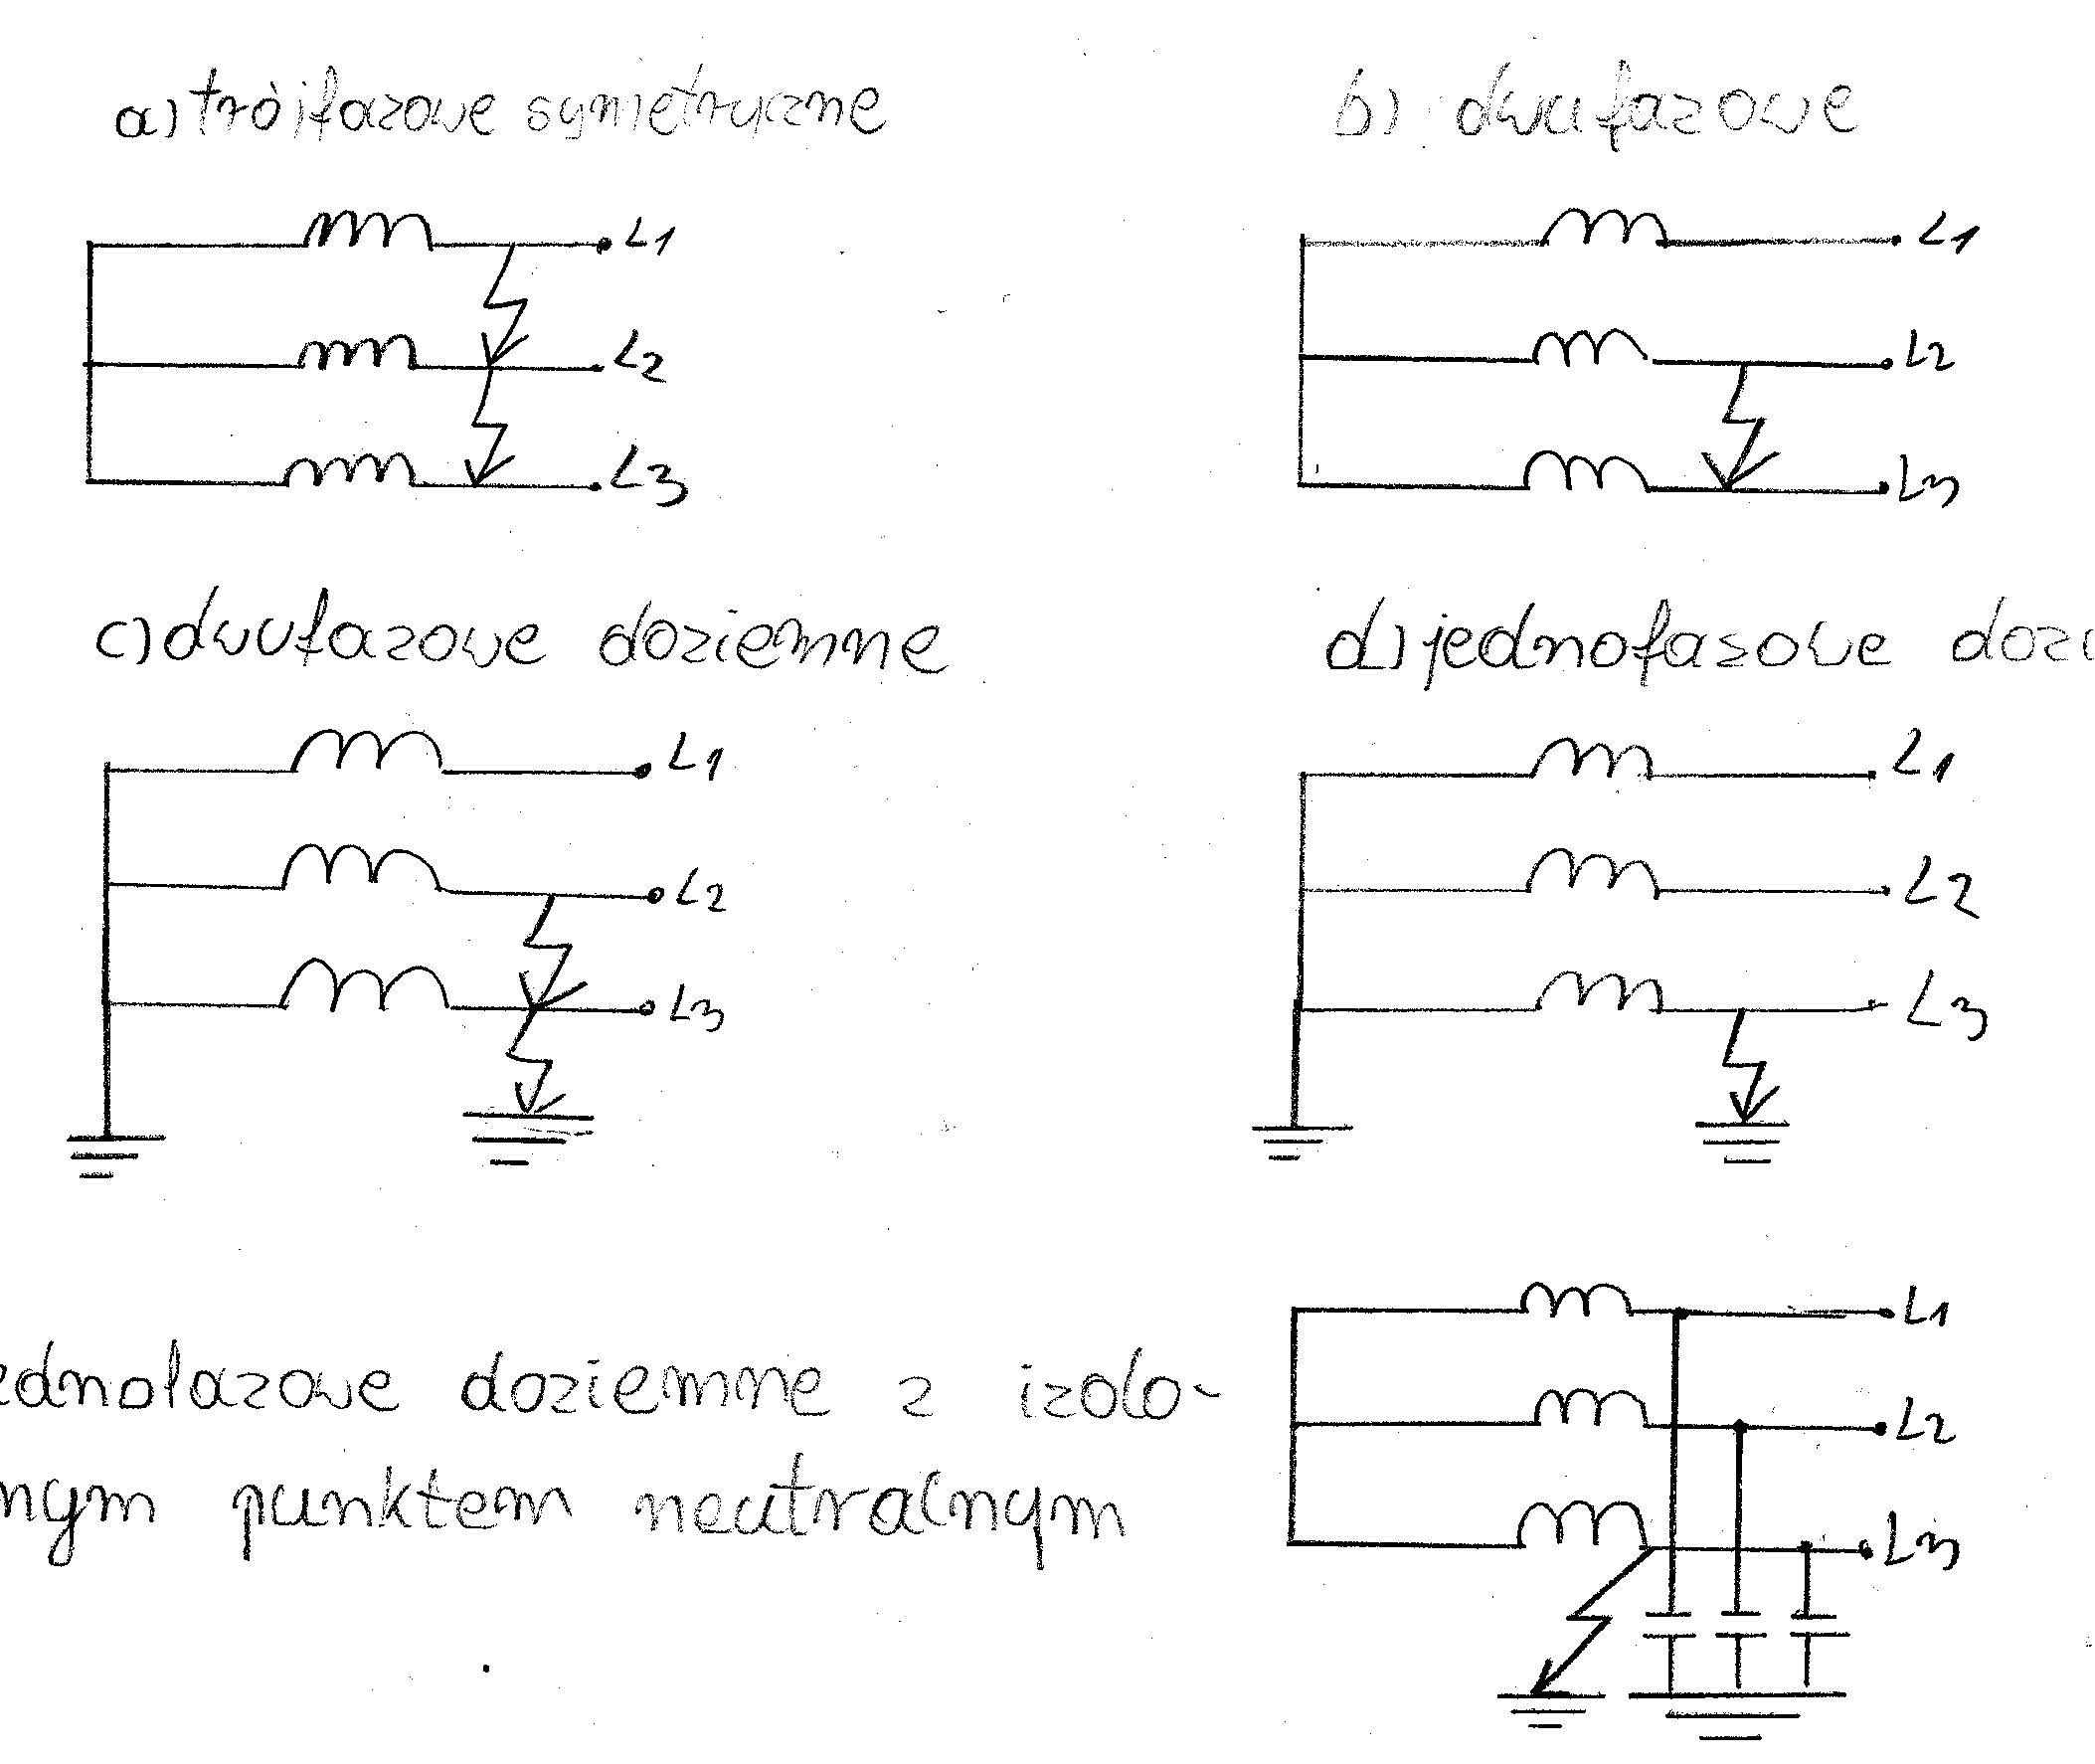 a) trójfazowe symetryczne
b) dwufazowe
L1
L2
L3
L1
L2
L3
c) dwufazowe doziemne
d) jednofazowe dozi
L1
L2
L3
L1
L2
L3
ednofazowe doziemne z izolo-
nym punktem neutralnym
L1
L2
L3